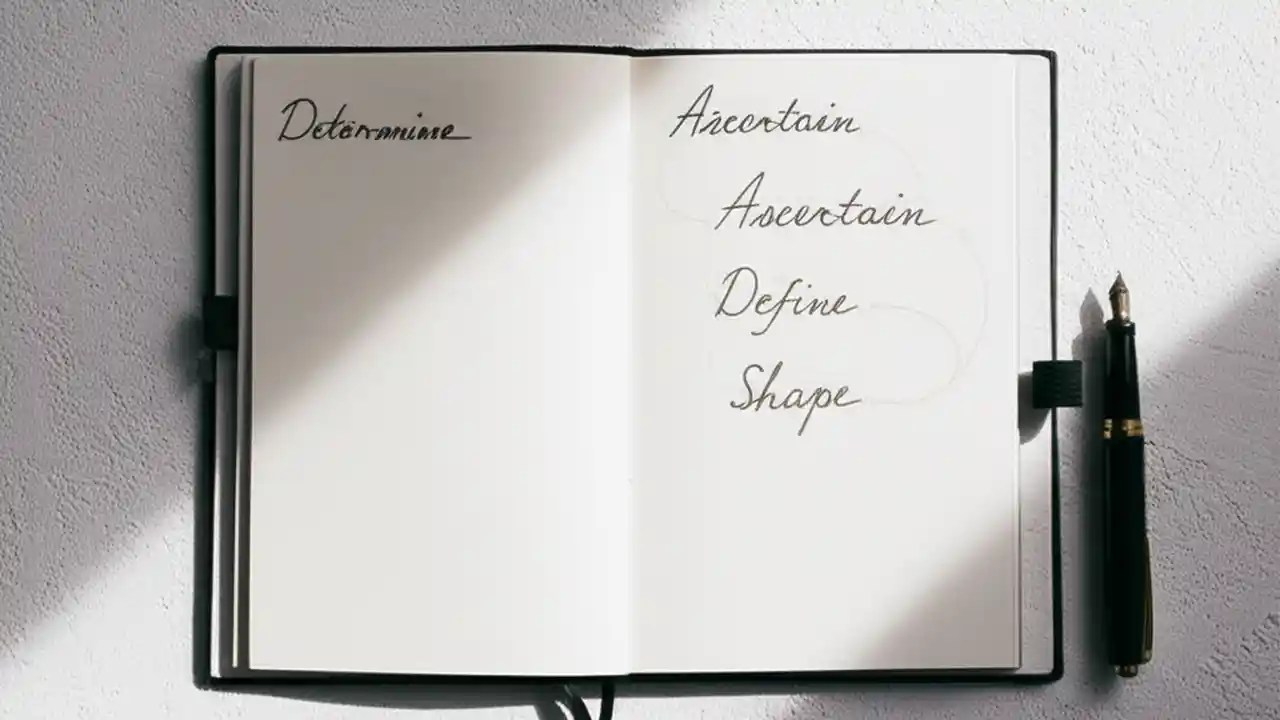 Determine
Ascertain
Ascertain
Define
Shape